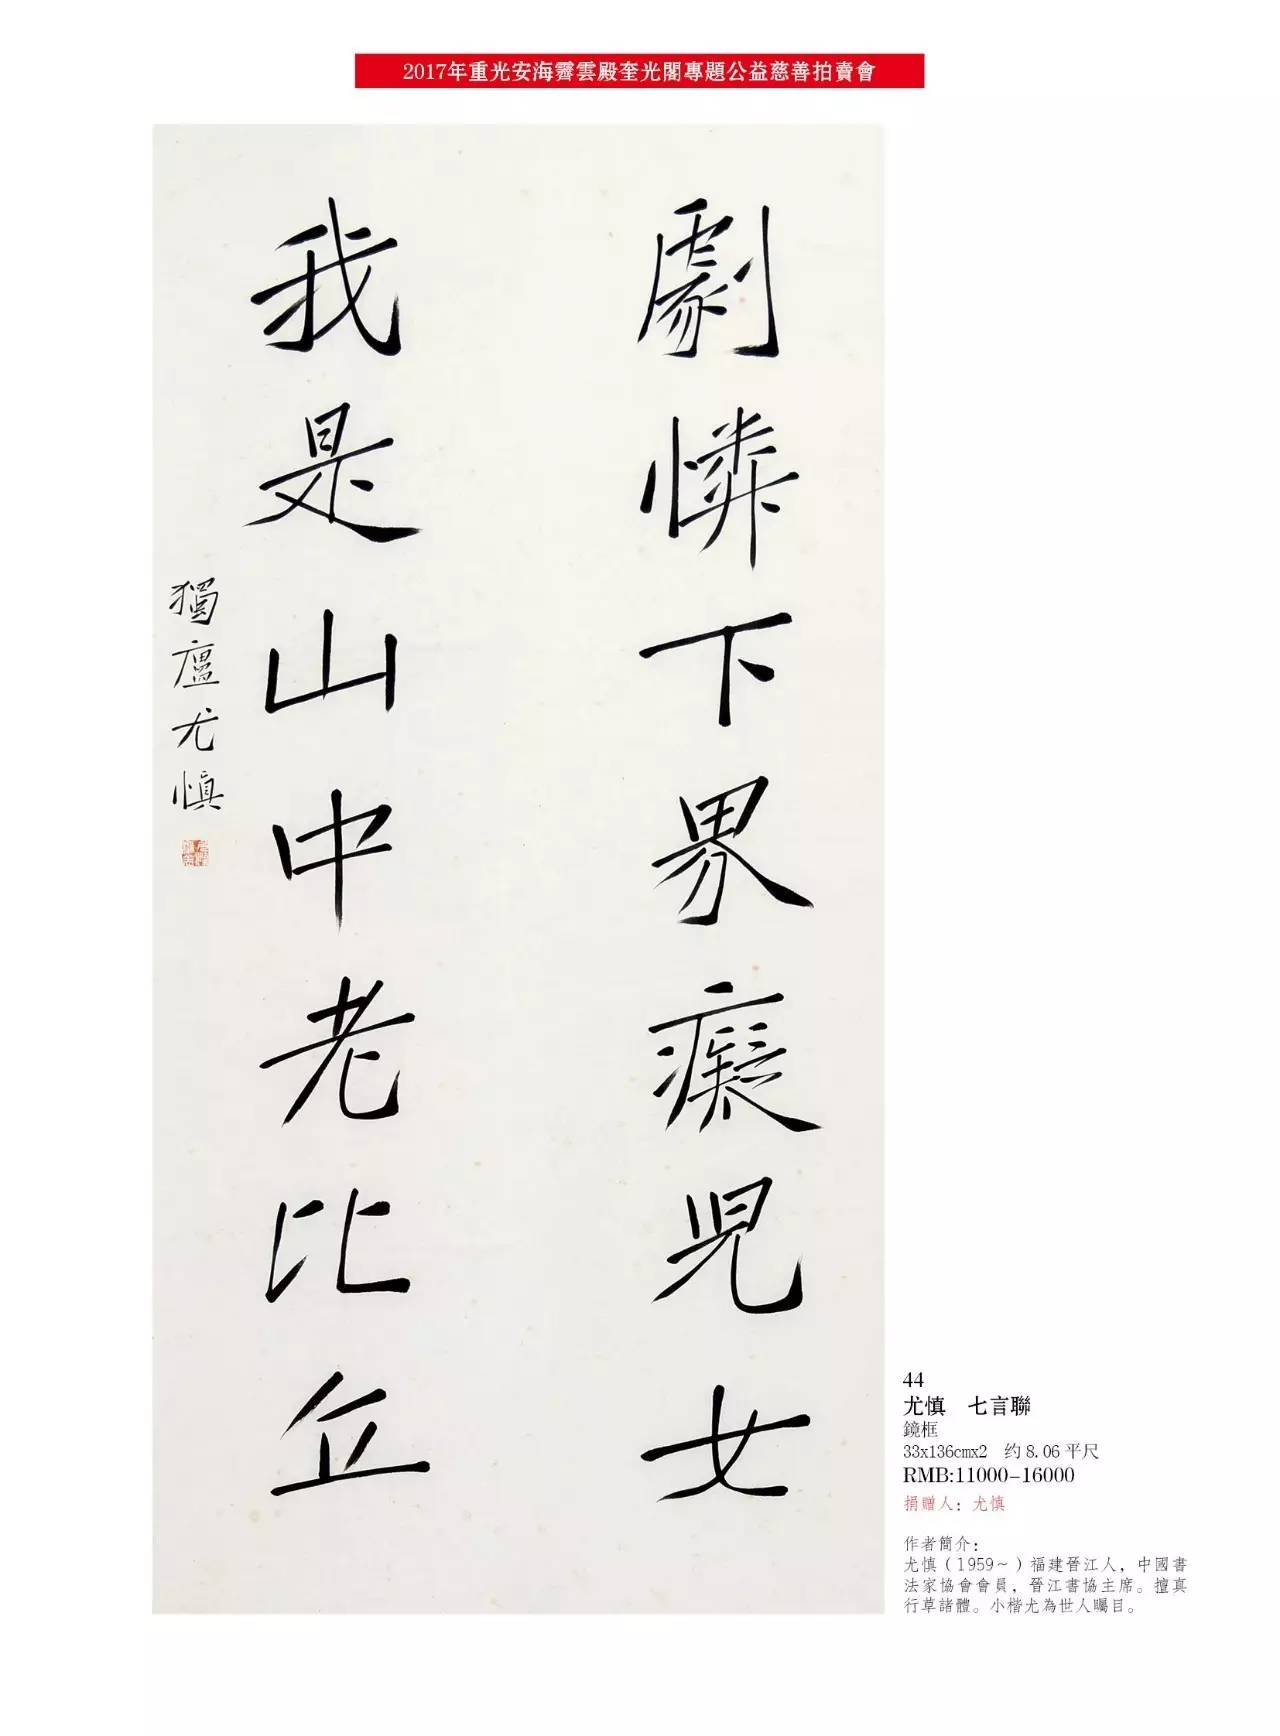 2017年重光安海霽雲殿奎光閣專題公益慈善拍賣會
劇憐下界癡兒女
我是山中老比丘
獨廬尤慎
44
尤慎　七言聯
鏡框
33x136cmx2　约 8.06 平尺
RMB:11000-16000
捐贈人：尤慎
作者簡介：
尤慎（1959～）福建晉江人，中國書
法家協會會員，晉江書協主席。擅真
行草諸體。小楷尤為世人矚目。